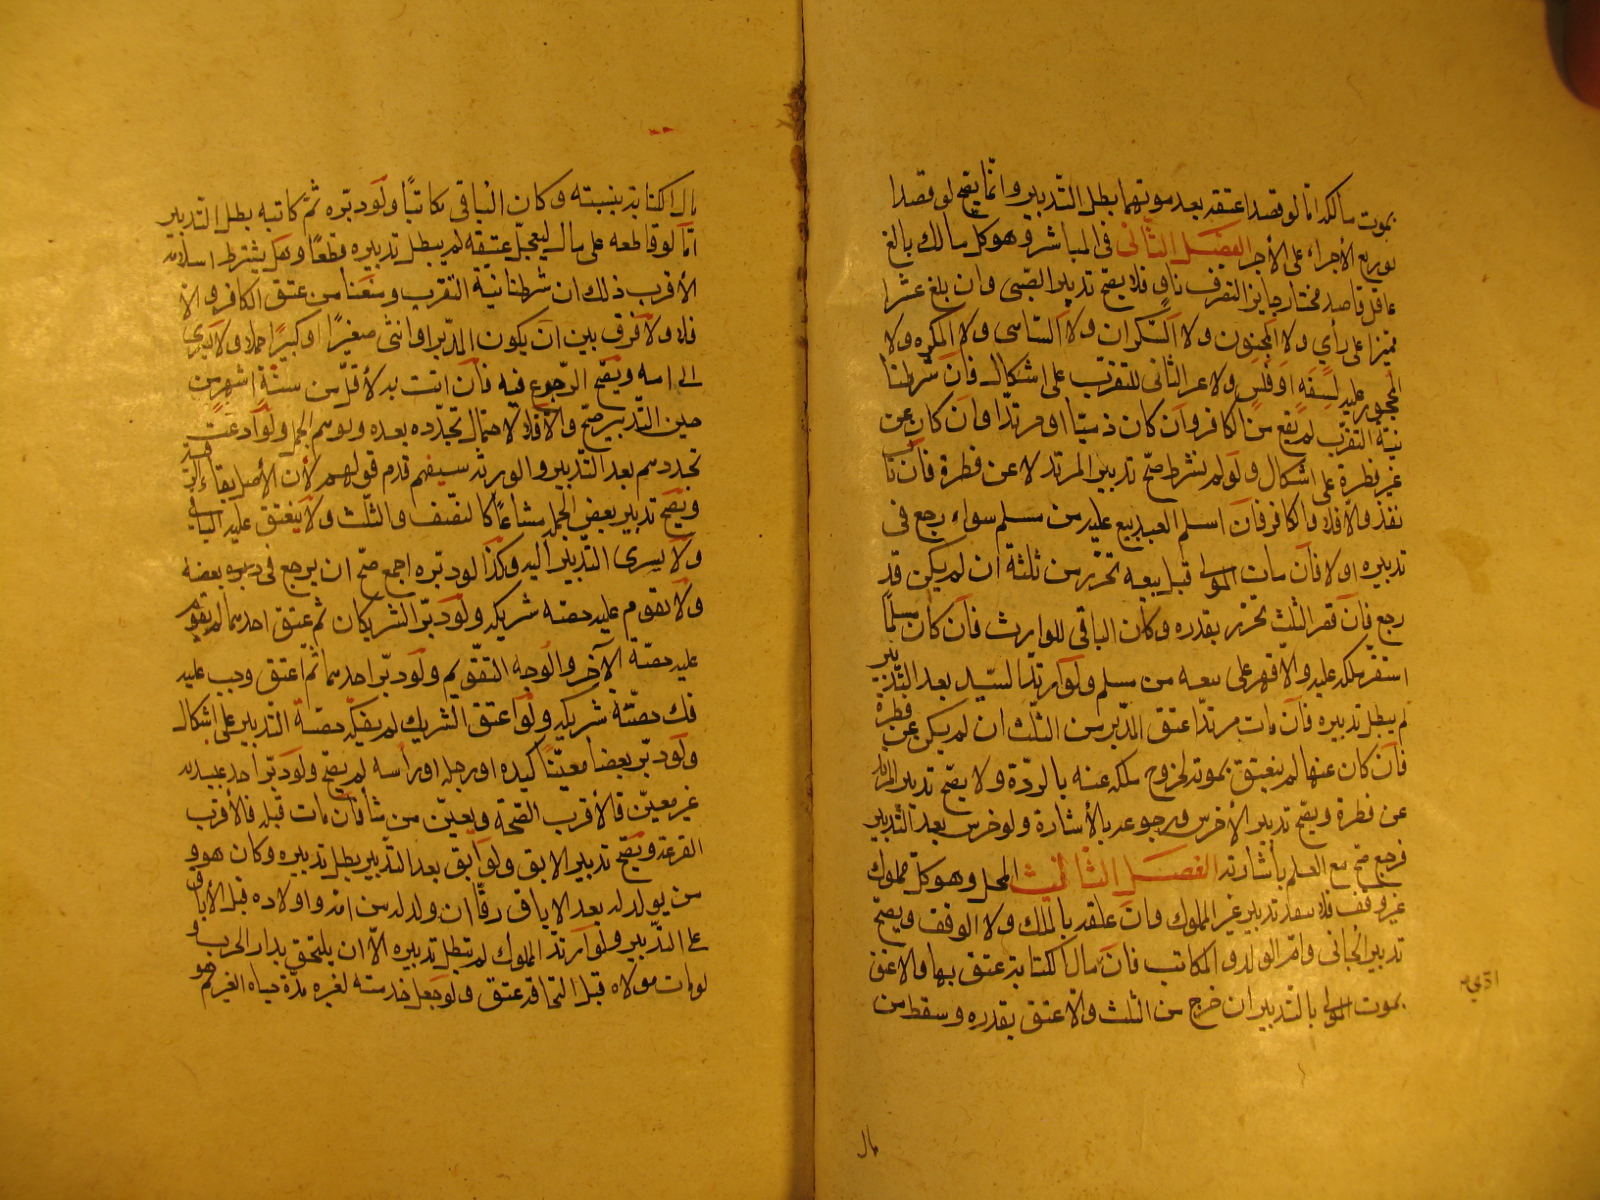 بموت مالكه اما لو قصدا عتقه بعد موتهما بطل التدبير وانما يصح لو قصدا
توزيع الأجزاء على الأجزا الفصل الثاني في المباشر وهو كل مالك بالغ
عاقل قاصد مختار جايز التصرف ناو فلا يصح تدبير الصبي وان بلغ عشرا
مميزا على رأي ولا المجنون ولا السكران ولا الساهي ولا المكره ولا
المحجور عليه لسفه او فلس ولا غير الناوي للتقرب على اشكال فان شرطنا
نية التقرب لم يقع من الكافر وان كان ذميا او مرتدا وان كان عن
غير فطرة على اشكال ولو لم نشرط صح تدبير المرتد لا عن فطرة فان تاب
نفذ والا فلا والكافر فان اسلم العبد بيع عليه من مسلم سواء رجع في
تدبيره او لا فان مات المولى قبل بيعه تحرر من ثلثه ان لم يكن قد
رجع فان قصر الثلث تحرر بقدره وكان الباقي للوارث فان كان مسلما
استقر ملكه عليه والا قهر على بيعه من مسلم ولو ارتد السيد بعد التدبير
لم يبطل تدبيره فان مات مرتدا عتق المدبر من الثلث ان لم يكن عن فطرة
فان كان عنها لم ينعتق بموته لخروج ملكه عنه بالردة ولا يصح تدبير المرتد
عن فطرة ويصح تدبير الأخرس ورجوعه بالأشارة ولو خرس بعد التدبير
فرجع صح مع العلم بأشارته الفصل الثالث المحل وهو كل مملوك
غير وقف فلا ينفذ تدبير غير المملوك وان علقه بالملك ولا الوقف ويصح
تدبير الجاني وام الولد والمكاتب فان ادى مال الكتابة عتق بها والا عتق
بموت المولى بالتدبير ان خرج من الثلث والا عتق بقدره وسقط من
مال
مال الكتابة بنسبته وكان الباقي مكاتبا ولو دبره ثم كاتبه بطل التدبير
اما لو قاطعه على مال ليعجل عتقه لم يبطل تدبيره قطعا وهل يشترط اسلامه
الأقرب ذلك ان شرطنا نية التقرب ومنعنا من عتق الكافر والا
فلا ولا فرق بين ان يكون المدبر او انثى صغيرا او كبيرا حملا ولا يسري
الى امه ويصح الرجوع فيه فان اتت به لأقل من ستة اشهر من
حين التدبير صح والا فلا لاحتمال تجدده بعده ولو سم الحمل ولو ادعت
تجدد بعد التدبير والورثة سبقهم قدم قولهم لأن الأصل بقاء
ويصح تدبير بعض الجملة مشاعا كالنصف والثلث ولا ينعتق عليه الباقي
ولا يسري التدبير اليه وكذا لو دبره اجمع صح ان يرجع في تدبيره بعضه
ولا تقوم عليه حصة شريكه ولو دبر الشريكان ثم عتق احدهما لم تقوم
عليه حصة الآخر والوجه التقويم ولو دبر احدهما ثم اعتق وجب عليه
فك حصة شريكه ولو اعتق الشريك لم يفك حصة التدبير على اشكال
ولو دبر بعضا معينا كيده او رجله او رأسه لم يصح ولو دبر احد عبيده
غير معين فالأقرب الصحة ويعين من شا فان مات قبله فالأقرب
القرعة ويصح تدبير الابق ولو ابق بعد التدبير بطل تدبيره وكان هو و
من يولد له بعد الاباق رقا ان ولد له من امة واولاده قبل الأباق
على التدبير ولو ارتد المملوك لم تبطل تدبيره الا ان يلتحق بدار الحرب و
لو مات مولاه قبل التحاقه عتق ولو جعل خدمته لغيره مدة حياه الغير ثم هو